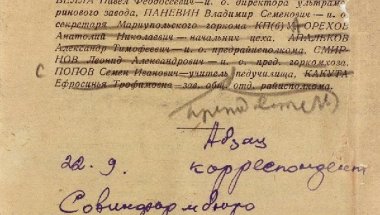 ВЕЛЛА Павел Феодосеевич—и. о. директора ультрама-
ринового завода, ПАНЕВИН Владимир Семенович — и. о.
секретаря Минплитовского горкома КП(б) ОРЕХОВ
Анатолий Николаевич—начальник цеха. АПАЛЬКОВ
Александр Тимофеевич—и. о. предрайисполкома. СМИР-
НОВ Леонид Александрович—и. о. пред. горкомхоза.
с ПОПОВ Семен Иванович—учитель педучилища, КАКУТА
Ефросинья Трофимовна—зав. общ. отд. райисполкома.
Абзац
22.9. корреспондент
Совинформбюро